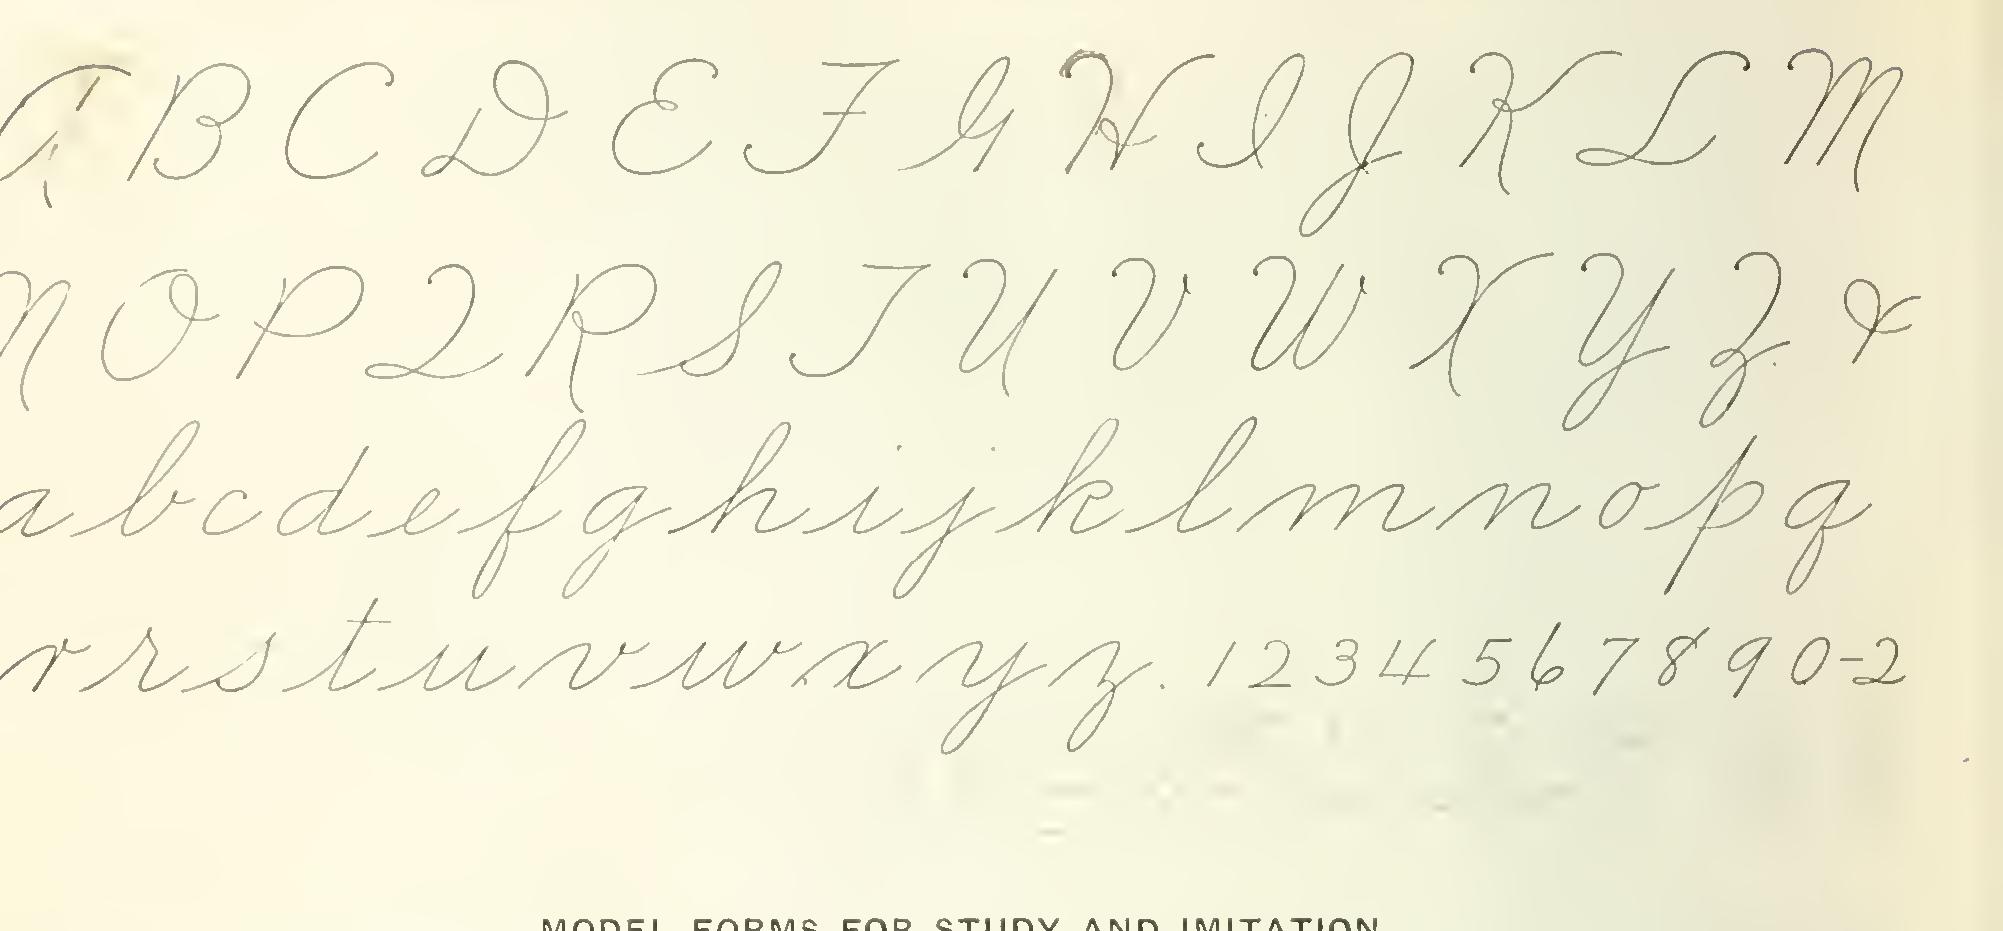 A B C D E F G H I J K L M
N O P Q R S T U V W X Y Z &
a b c d e f g h i j k l m n o p q
r r s t u v w x y z. 1 2 3 4 5 6 7 8 9 0-2
MODEL FORMS FOR STUDY AND IMITATION